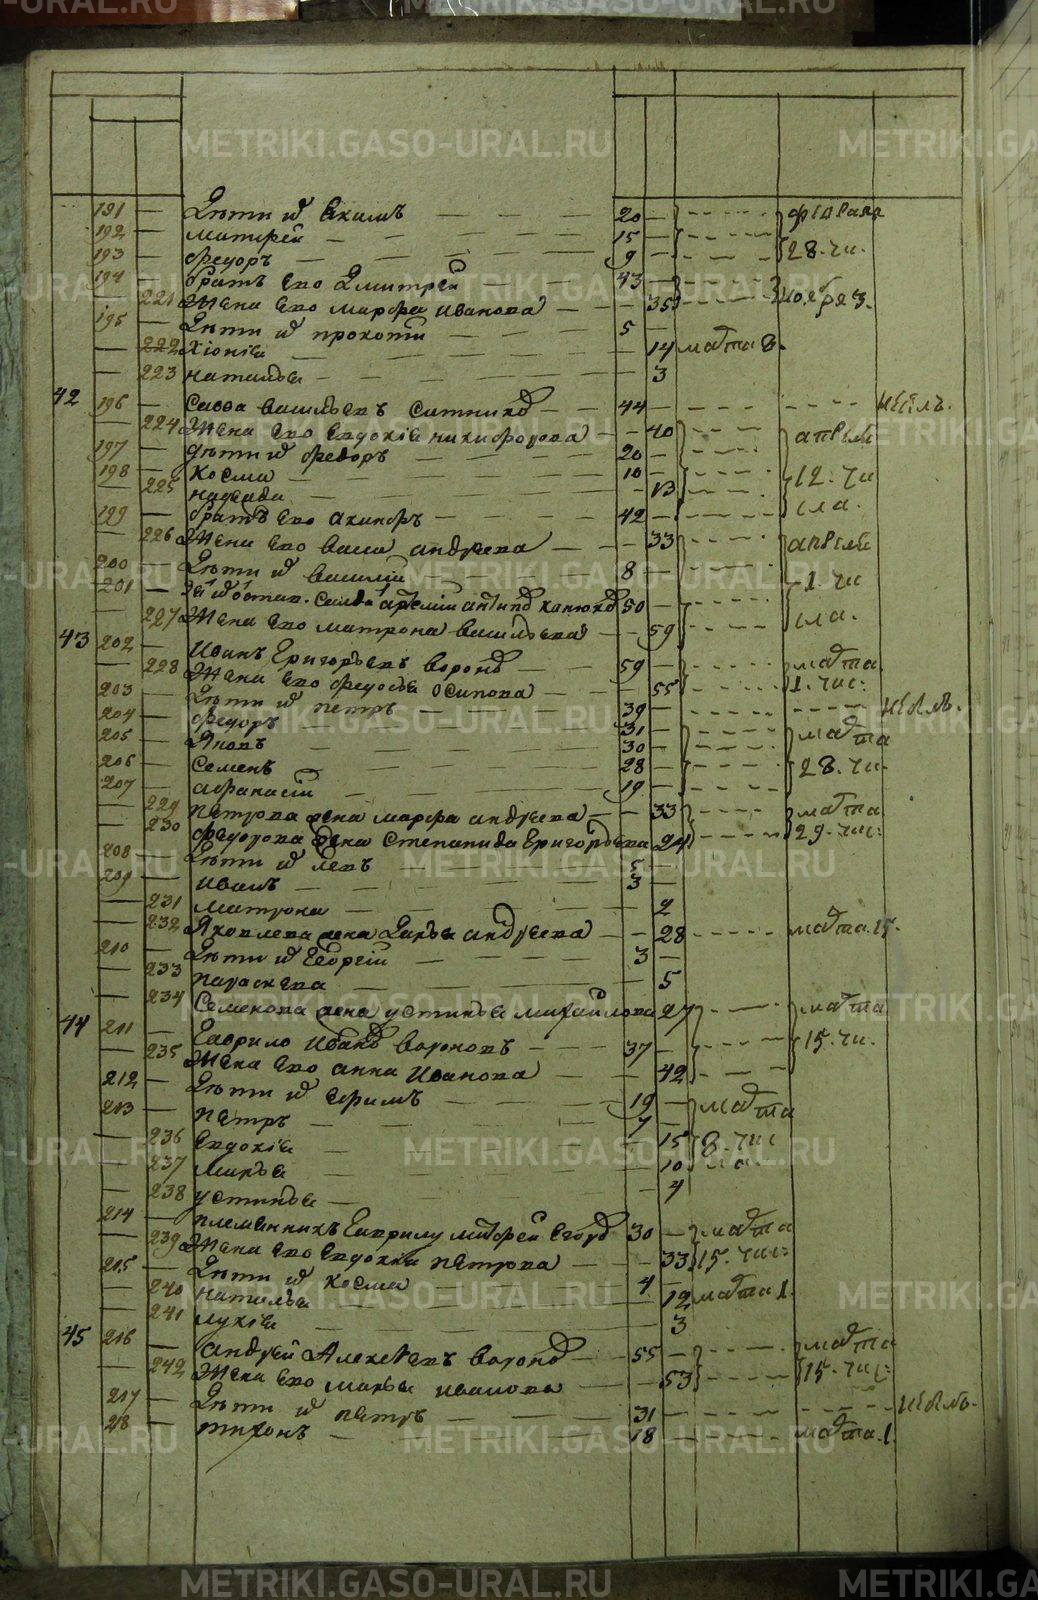 METRIKI.GASO-URAL.RU
191 — Дѣти и Екимъ — 20 — февраля
192 — Матфей — 15 — 28. чи.
193 — Федоръ — 9 —
194 — братъ ево Дмитрей — 43 —
221 Жена ево Марфа Иванова — 35
195 — Дѣти и Прокопій — 5 —
222 Хіонія — 14 марта 8.
223 Наталья — 3
42 196 — Савва Васильевъ Ситнико — 44 —
224 Жена ево Евдокія Никифорова — 40 апреля
197 — дѣти и Федоръ — 20 — 12. чи
198 — Косма — 10 — сла.
225 Надежда — 13
199 — братъ ево — 42 —
226 Жена ево Васса Андреева — 33 апреля
200 — Дѣти и Василій — 8 — 1. чи
201 — 50 — сла.
227 Жена ево Матрона Васильева — 59
43 202 — Иванъ Григорьевъ Вороно — 59 — марта
228 Жена ево Федосья Осипова — 55 1. чис:
203 — Дѣти и Петръ — 39 —
204 — Федоръ — 31 — марта
205 — Яковъ — 30 —
206 — Семенъ — 28 — 28. чи.
207 — Афанасій — 19 —
229 Петрова жена Марфа Андреева — 33 марта
230 Федорова жена Степанида Григорьева 24 29. чис:
208 — Дѣти и Левъ — 5 —
209 — Иванъ — 3 —
231 Матрона — 2
232 Яковлева жена Дарья Андреева — 28 марта 15.
210 — Дѣти и Георгій — 3 —
233 Параскева — 5
234 Семенова жена Устинья Михайлова 27 марта
44 211 — Гаврило Ивано Вороновъ — 37 — 15. чи.
235 Жена ево Анна Иванова — 42
212 — Дѣти и Ефимъ — 19 — марта
213 — Петръ — 7 —
236 Евдокія — 15 8. чис
237 Марья — 10 ла.
238 Устинья — 4
214 — племянникъ Гаврилу Матфей Егоро 30 — марта
239 Жена ево Евдокия Петрова — 33 15. чис:
215 — Дѣти и Косма — 4 —
240 Наталья — 12 марта 1.
241 Лукія — 3
45 216 — Андрей Алексеевъ Вороно — 55 — марта
242 Жена ево Марья Иванова — 53 15. чис:
217 — Дѣти и Петръ — 31 —
218 — Тихонъ — 18 — марта 1.